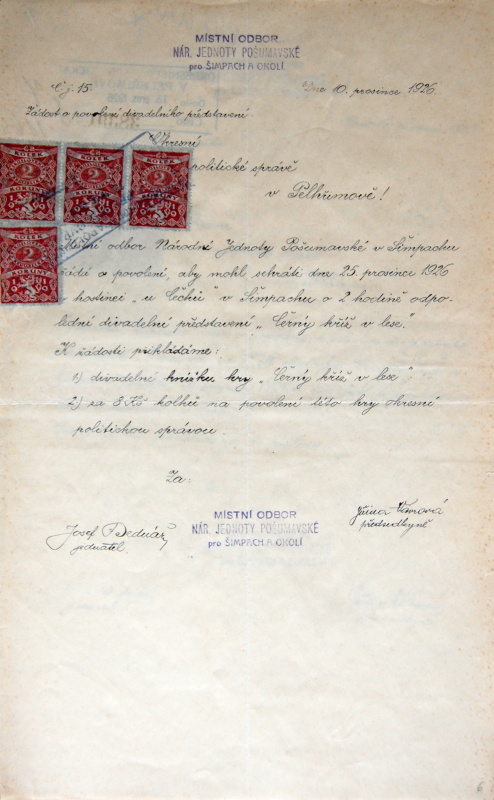 MÍSTNÍ ODBOR
NÁR. JEDNOTY POŠUMAVSKÉ
pro ŠIMPACH A OKOLÍ.
Č.j. 15.
Dne 10. prosince 1926.
Žádost o povolení divadelního představení.
Okresní
politické správě
v Pelhřimově!
KOLEK
2
KORUNY
KOLEK
2
KORUNY
KOLEK
2
KORUNY
KOLEK
2
KORUNY
odbor Národní Jednoty Pošumavské v Šimpachu
žádá o povolení, aby mohl sehráti dne 25. prosince 1926
hostinci „u Čechů" v Šimpachu o 2 hodině odpo-
lední divadelní představení „Černý kříž v lese."
K žádosti přikládáme:
1) divadelní knížku hry „Černý kříž v lese".
2) za 8 Kč kolků na povolení této hry okresní
politickou správou.
Za:
MÍSTNÍ ODBOR
NÁR. JEDNOTY POŠUMAVSKÉ
pro ŠIMPACH A OKOLÍ.
Josef Bednář,
jednatel.
předsedkyně
6